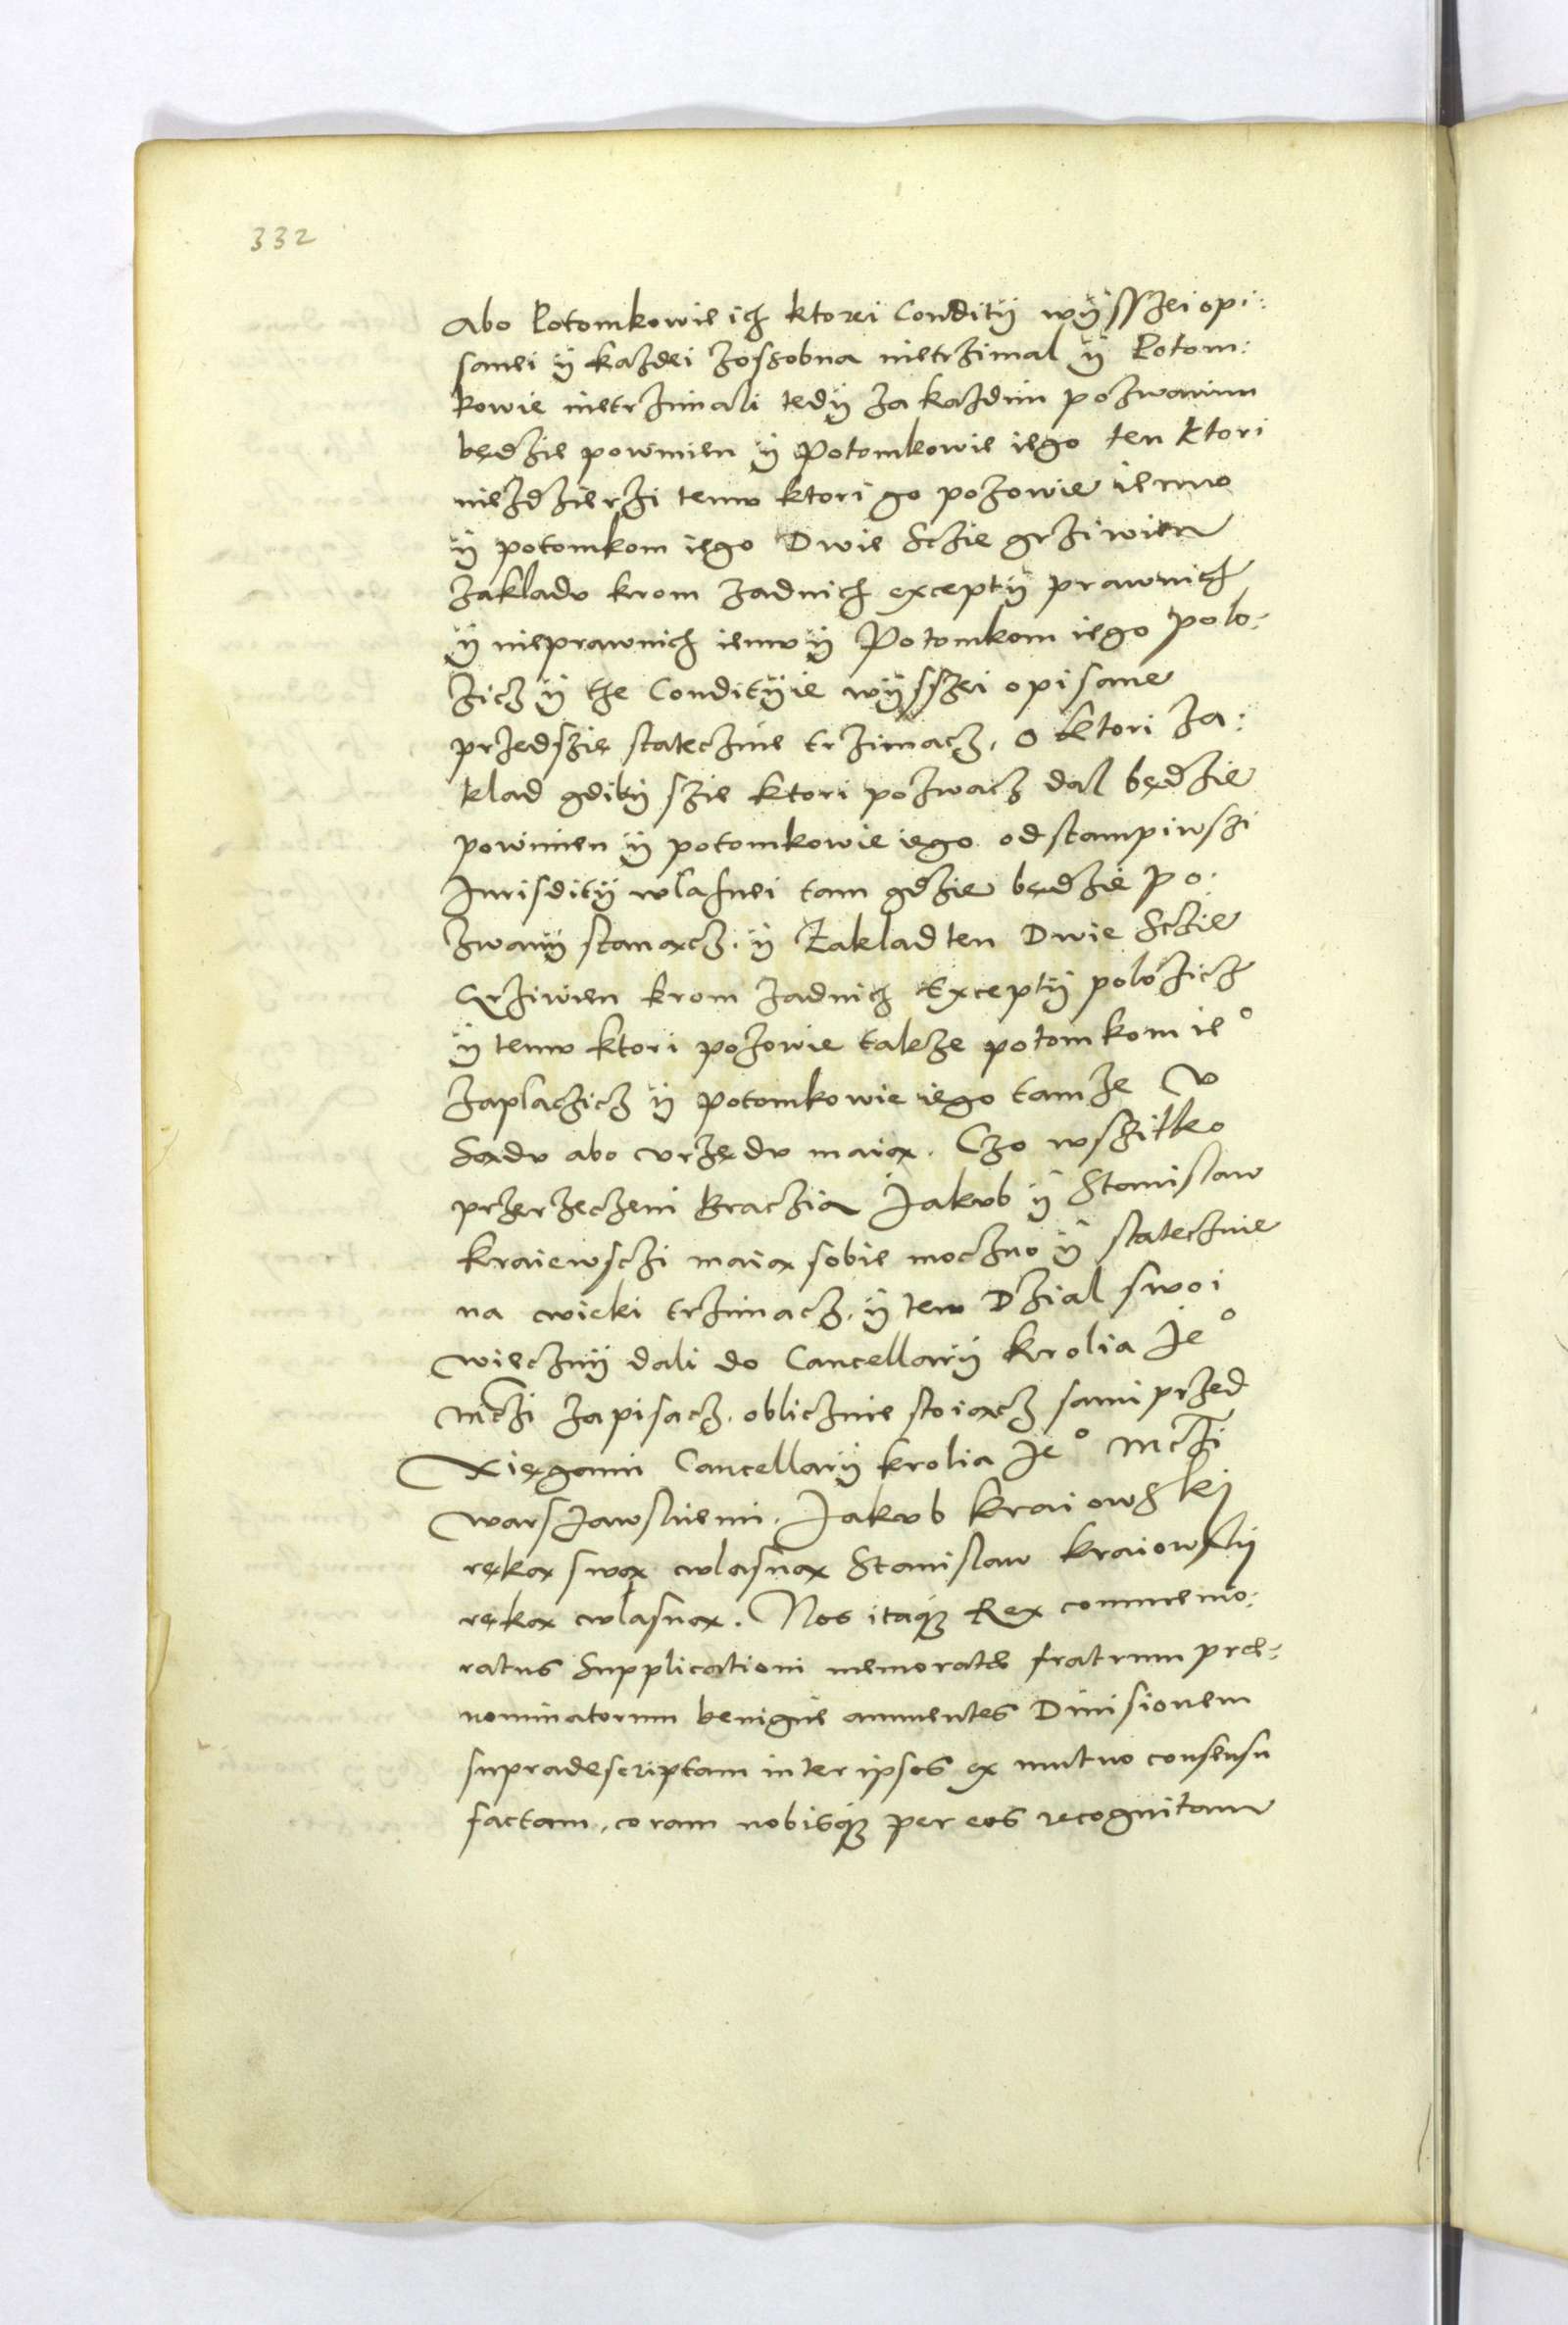 332
Abo Potomkowie ich ktori Conditÿ wÿsszei opi:
sanei ÿ kazdei zossobna nietrzimal ÿ Potom:
kowie nietrzimali tedÿ za kazdim pozwanim
będzie powinien ÿ Potomkowie iego ten ktori
niezdzierzi temv ktori go pozowie iemv
ÿ potomkom iego Dwie Sczie grziwien
zakladv krom zadnich exceptÿ prawnich
ÿ nieprawnich iemv ÿ Potomkom iego polo:
zicz ÿ the Conditÿie wÿsszei opisane
przedszie statecznie trzimacz, o ktori za:
klad gdibÿ szie ktori pozwacz dal będzie
powinien ÿ potomkowie iego odstampiwszi
Jurisditÿ wlasnei tam gdzie będzie po:
zwanÿ stanącz. ÿ Zaklad ten Dwie Sczie
Grziwien krom zadnich Exceptÿ polozicz
ÿ temv ktori pozowie takze potomkom ie°
zaplaczicz ÿ potomkowie iego tamze v
Sądv abo vrzędv maią. Czo wszitko
przerzeczeni Braczia Jakvb ÿ Stanislaw
kraiewsczi maią sobie moczno ÿ statecznie
na wieki trzimacz, ÿ ten Dzial swoi
wiecznÿ dali do Cancellarÿ krolia Je°
Mczi zapisacz, oblicznie stoiącz sami przed
Xięgami Cancellarÿ krolia Je° Mczi
warszawskiemi. Jakvb kraiowskÿ
ręką swą wlasną Stanislaw kraiowskÿ
ręką wlasną. Nos itaq3 Rex commemo:
ratus Supplicationi memoratę fratrum pre:
nominatorum benigne annuentes Diuisionem
supradescriptam inter ipsos ex mutuo consensu
factam, coram nobisq3 per eos recognitam